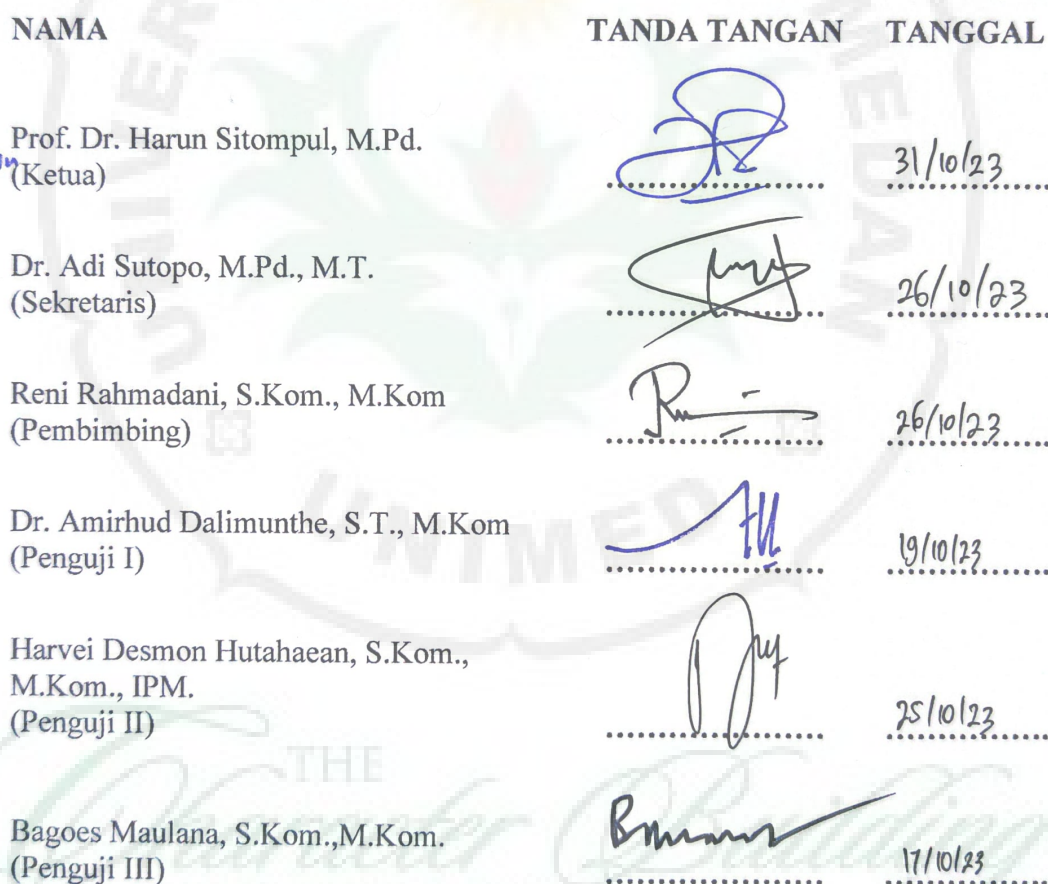 NAMA TANDA TANGAN TANGGAL
Prof. Dr. Harun Sitompul, M.Pd.
(Ketua) 31/10/23
Dr. Adi Sutopo, M.Pd., M.T.
(Sekretaris) 26/10/23
Reni Rahmadani, S.Kom., M.Kom
(Pembimbing) 26/10/23
Dr. Amirhud Dalimunthe, S.T., M.Kom
(Penguji I) 19/10/23
Harvei Desmon Hutahaean, S.Kom.,
M.Kom., IPM.
(Penguji II) 25/10/23
Bagoes Maulana, S.Kom.,M.Kom.
(Penguji III) 17/10/23
UNIMED
THE
Character Building